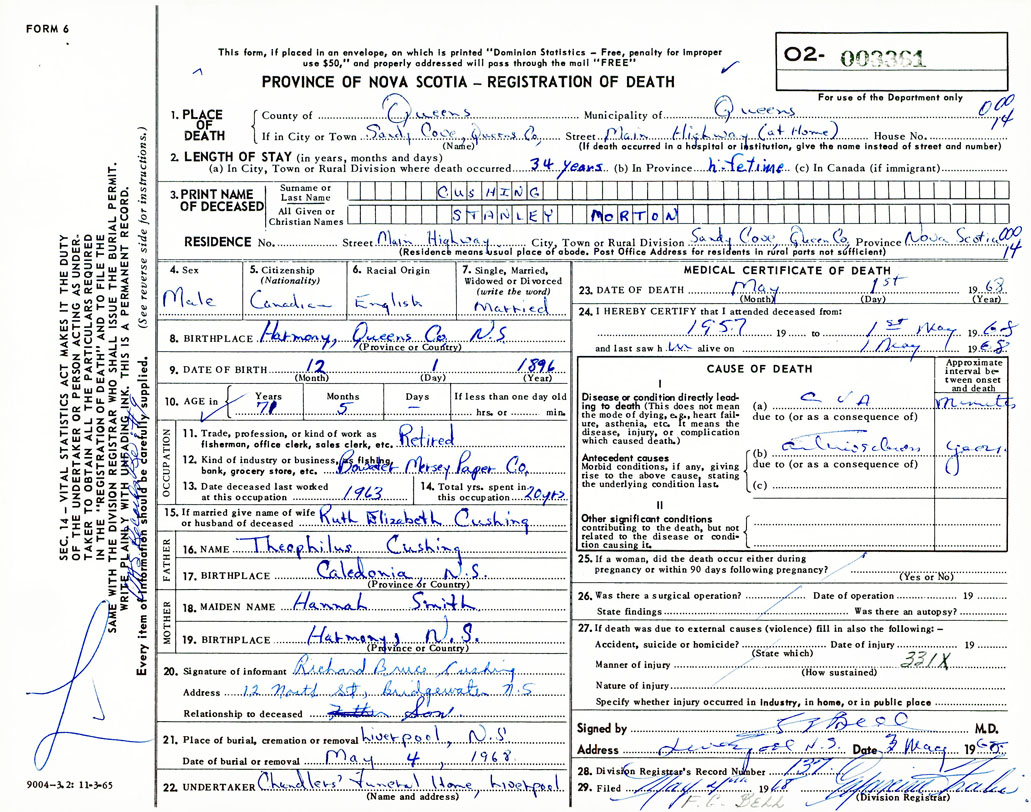 FORM 6
This form, if placed in an envelope, on which is printed "Dominion Statistics – Free, penalty for improper
use $50," and properly addressed will pass through the mail "FREE"
PROVINCE OF NOVA SCOTIA – REGISTRATION OF DEATH
O2- 003361
For use of the Department only
000
14
1. PLACE OF DEATH
County of Queens Municipality of Queens
If in City or Town Sandy Cove, Queens Co, Street Main Highway (at Home) House No.
(Name) (If death occurred in a hospital or institution, give the name instead of street and number)
2. LENGTH OF STAY (in years, months and days)
(a) In City, Town or Rural Division where death occurred 34 years (b) In Province lifetime (c) In Canada (if immigrant)
3. PRINT NAME OF DECEASED
Surname or Last Name CUSHING
All Given or Christian Names STANLEY MORTON
RESIDENCE No. Street Main Highway City, Town or Rural Division Sandy Cove, Queen Co, Province Nova Scotia 000
14
(Residence means usual place of abode. Post Office Address for residents in rural parts not sufficient)
4. Sex
Male
5. Citizenship
(Nationality)
Canadian
6. Racial Origin
English
7. Single, Married,
Widowed or Divorced
(write the word)
Married
8. BIRTHPLACE Harmony, Queens Co. N.S
(Province or Country)
9. DATE OF BIRTH 12 1 1896
(Month) (Day) (Year)
10. AGE in
Years Months Days If less than one day old
71 5 – hrs. or min.
OCCUPATION
11. Trade, profession, or kind of work as
fisherman, office clerk, sales clerk, etc. Retired
12. Kind of industry or business, as fishing,
bank, grocery store, etc. Bowater Mersey Paper Co.
13. Date deceased last worked
at this occupation 1963
14. Total yrs. spent in
this occupation 20yrs.
15. If married give name of wife
or husband of deceased Ruth Elizabeth Cushing
FATHER
16. NAME Theophilus Cushing
17. BIRTHPLACE Caledonia N.S.
(Province or Country)
MOTHER
18. MAIDEN NAME Hannah Smith
19. BIRTHPLACE Harmony, N.S.
(Province or Country)
20. Signature of informant Richard Bruce Cushing
Address 12 North St, Bridgewater N.S
Relationship to deceased Son
21. Place of burial, cremation or removal Liverpool, N.S
Date of burial or removal May 4, 1968.
22. UNDERTAKER Chandlers' Funeral Home, Liverpool
(Name and address)
MEDICAL CERTIFICATE OF DEATH
23. DATE OF DEATH May 1st 1968
(Month) (Day) (Year)
24. I HEREBY CERTIFY that I attended deceased from:
1957 19 to 1st May 1968
and last saw him alive on 1 May 1968
CAUSE OF DEATH
Approximate
interval between
onset
and death
I
Disease or condition directly leading
to death (This does not
mean the mode of dying, e.g., heart failure,
asthenia, etc. It means the
disease, injury, or complication
which caused death.)
(a) CVA Minutes
due to (or as a consequence of)
Antecedent causes
Morbid conditions, if any, giving
rise to the above cause, stating
the underlying condition last.
(b) years
due to (or as a consequence of)
(c)
II
Other significant conditions
contributing to the death, but not
related to the disease or condition
causing it.
25. If a woman, did the death occur either during
pregnancy or within 90 days following pregnancy?
(Yes or No)
26. Was there a surgical operation? Date of operation 19
State findings Was there an autopsy?
27. If death was due to external causes (violence) fill in also the following: –
Accident, suicide or homicide? Date of injury 19
(State which)
Manner of injury 331X
(How sustained)
Nature of injury
Specify whether injury occurred in industry, in home, or in public place
Signed by Bell M.D.
Address Liverpool N.S. Date 3 May 1968
28. Division Registrar's Record Number 137
29. Filed May 4 1968
(Division Registrar)
F. G. BELL
SEC. 14 – VITAL STATISTICS ACT MAKES IT THE DUTY
OF THE UNDERTAKER OR PERSON ACTING AS UNDERTAKER
TO OBTAIN ALL THE PARTICULARS REQUIRED
IN THE "REGISTRATION OF DEATH" AND TO FILE THE
SAME WITH THE DIVISION REGISTRAR WHO SHALL ISSUE THE BURIAL PERMIT.
WRITE PLAINLY WITH UNFADING INK. THIS IS A PERMANENT RECORD.
Every item of information should be carefully supplied. (See reverse side for instructions.)
9004-3.2: 11-3-65